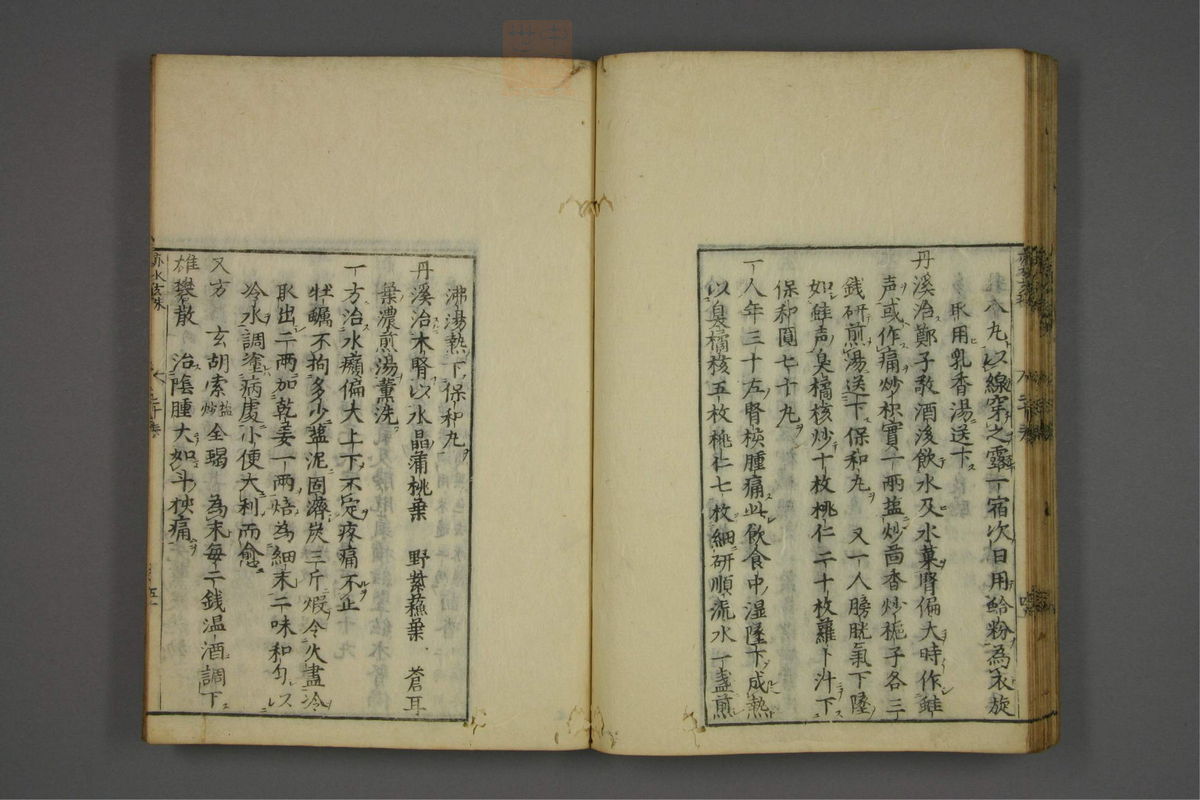 八丸以線穿之露一宿次日用蛤粉為衣旋
取用乳香湯送下
丹溪治鄭子敬酒後飲水及水菓腎偏大時作蛙
声或作痛炒枳實一兩盐炒茴香炒梔子各三
銭研煎湯送下保和丸　又一人膀胱氣下墜
如蛙声臭橘核炒十枚桃仁二十枚蘿卜汁下
保和圓七十丸
一人年三十左腎核腫痛此飲食中湿墜下成熱
以臭橘核五枚桃仁七枚細研順流水一盞煎
沸湯熱下保和丸
丹溪治木腎以水晶蒲桃葉　野紫蘓葉　蒼耳
葉濃煎湯薫洗
一方治水㿗偏大上下不定疼痛不止
牡蠣不拘多少盐泥固濟炭三斤煆令火盡冷
取出二兩加乾姜一兩焙為細末二味和匀
冷水調塗病處小便大利而愈
又方　玄胡索盐炒全蝎　為末毎二銭温酒調下
雄礬散　治陰腫大如斗核痛